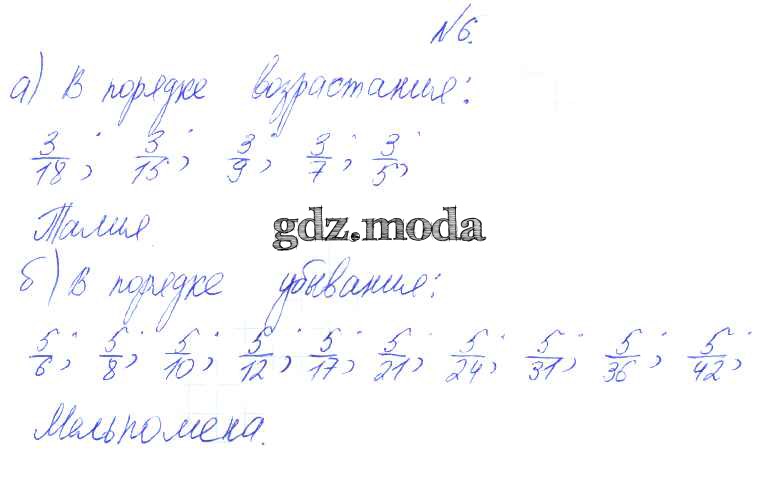 №6.
а) В порядке возрастания:
3/18; 3/15; 3/9; 3/7; 3/5;
Талия.
gdz.moda
б) В порядке убывания:
5/6; 5/8; 5/10; 5/12; 5/17; 5/21; 5/24; 5/31; 5/36; 5/42;
Мельпомена.